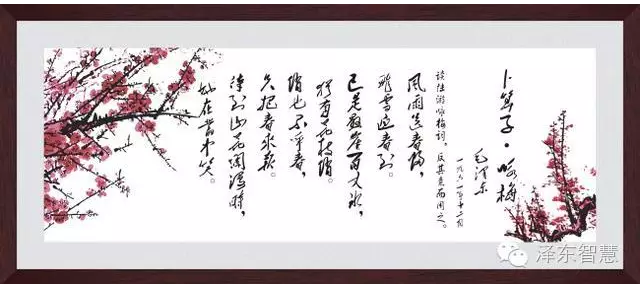 卜算子·咏梅
毛泽东
一九六一年十二月
读陆游咏梅词,反其意而用之。
风雨送春归,
飞雪迎春到。
已是悬崖百丈冰,
犹有花枝俏。
俏也不争春,
只把春来报。
待到山花烂漫时,
她在丛中笑。
泽东智慧